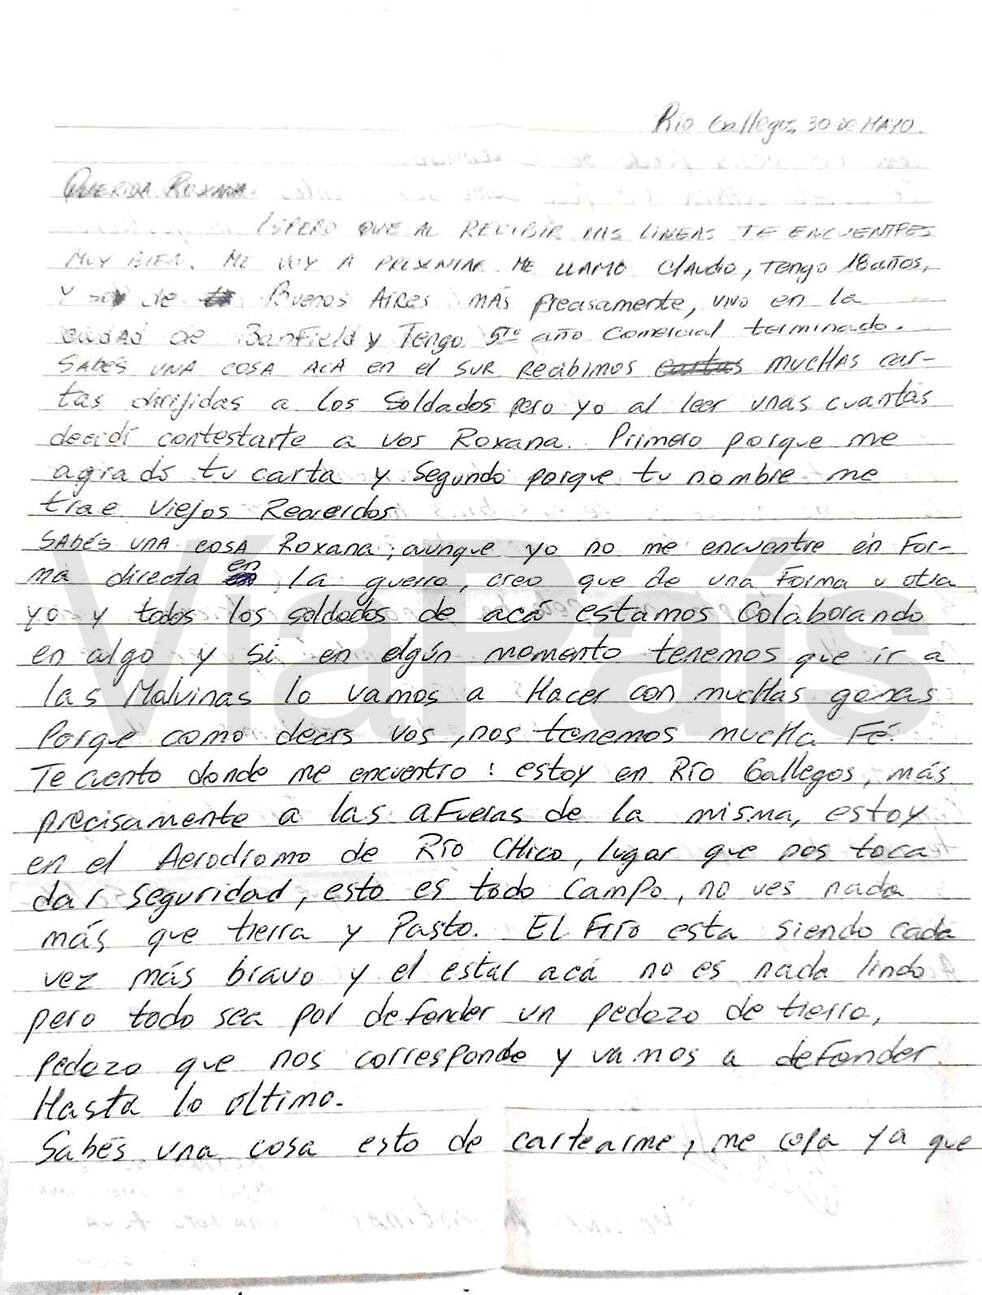 Río Gallegos, 30 de MAYO.
QUERIDA ROXANA
ESPERO QUE AL RECIBIR MIS LINEAS TE ENCUENTRES
MUY BIEN. ME VOY A PRESENTAR ME LLAMO Claudio, Tengo 18 años,
y soy de Buenos AIRES MÁS precasamente, vivo en la
ciudad de Banfield y Tengo 5to año Comercial terminado.
SABÉS UNA COSA ACÁ en el SUR Recibimos cartas MUCHAS car-
tas dirijidas a los Soldados pero yo al leer unas cuantas
decidí contestarte a vos Roxana. Primero porque me
agrado tu carta y Segundo porque tu nombre me
trae Viejos Recuerdos
SABÉS UNA COSA Roxana; aunque yo no me encuentre en For-
ma directa en la guerra, creo que de una Forma u otra
yo y todos los soldados de acá estamos Colaborando
en algo y si en algún momento tenemos que ir a
las Malvinas lo vamos a Hacer con muchas ganas
Porqe como decis vos, nos tenemos mucha Fé.
Te cuento donde me encuentro: estoy en Río Gallegos, más
precisamente a las aFueras de la misma, estoy
en el Aerodromo de Río CHico, lugar que nos toca
dar seguridad, esto es todo Campo, no ves nada
más que tierra y Pasto. EL Frío esta siendo cada
vez más bravo y el estar acá no es nada lindo
pero todo sea por defender un pedazo de tierra,
pedazo que nos corresponde y vamos a deFender
Hasta lo último.
Sabés una cosa esto de cartearme, me copa ya que
ViaPaís